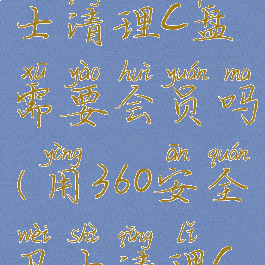 士清理C盘
xū yào huì yuán ma
需要会员吗
yòng ān quán
(用360安全
wèi shì qīng lǐ
卫士清理C